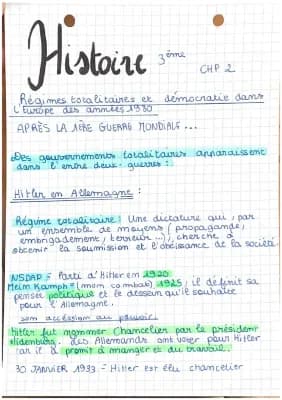 Histoire 3ème
CHP 2
Régimes totalitaires et démocratie dans
l'Europe des années 1930
APRÈS LA 1ÈRE GUERRE MONDIALE...
Des gouvernements totalitaires apparaissent
dans l'entre deux-guerres :
Hitler en Allemagne :
Régime totalitaire : Une dictature qui, par
un ensemble de moyens (propagande,
embrigadement, terreur...), cherche à
obtenir la soumission et l'obeissance de la société.
NSDAP = Parti d'Hitler en 1920
Meim Kampf = (mon combat) 1925, il définit sa
pensée politique et le dessein qu'il souhaite
pour l'Allemagne.
son accession au pouvoir:
Hitler fut nommer Chancelier par le président
Hidemburg. Les Allemands ont voter pour Hitler
car il à promit à manger et du travail.
30 JANVIER 1933 = Hitler est élu chancelier